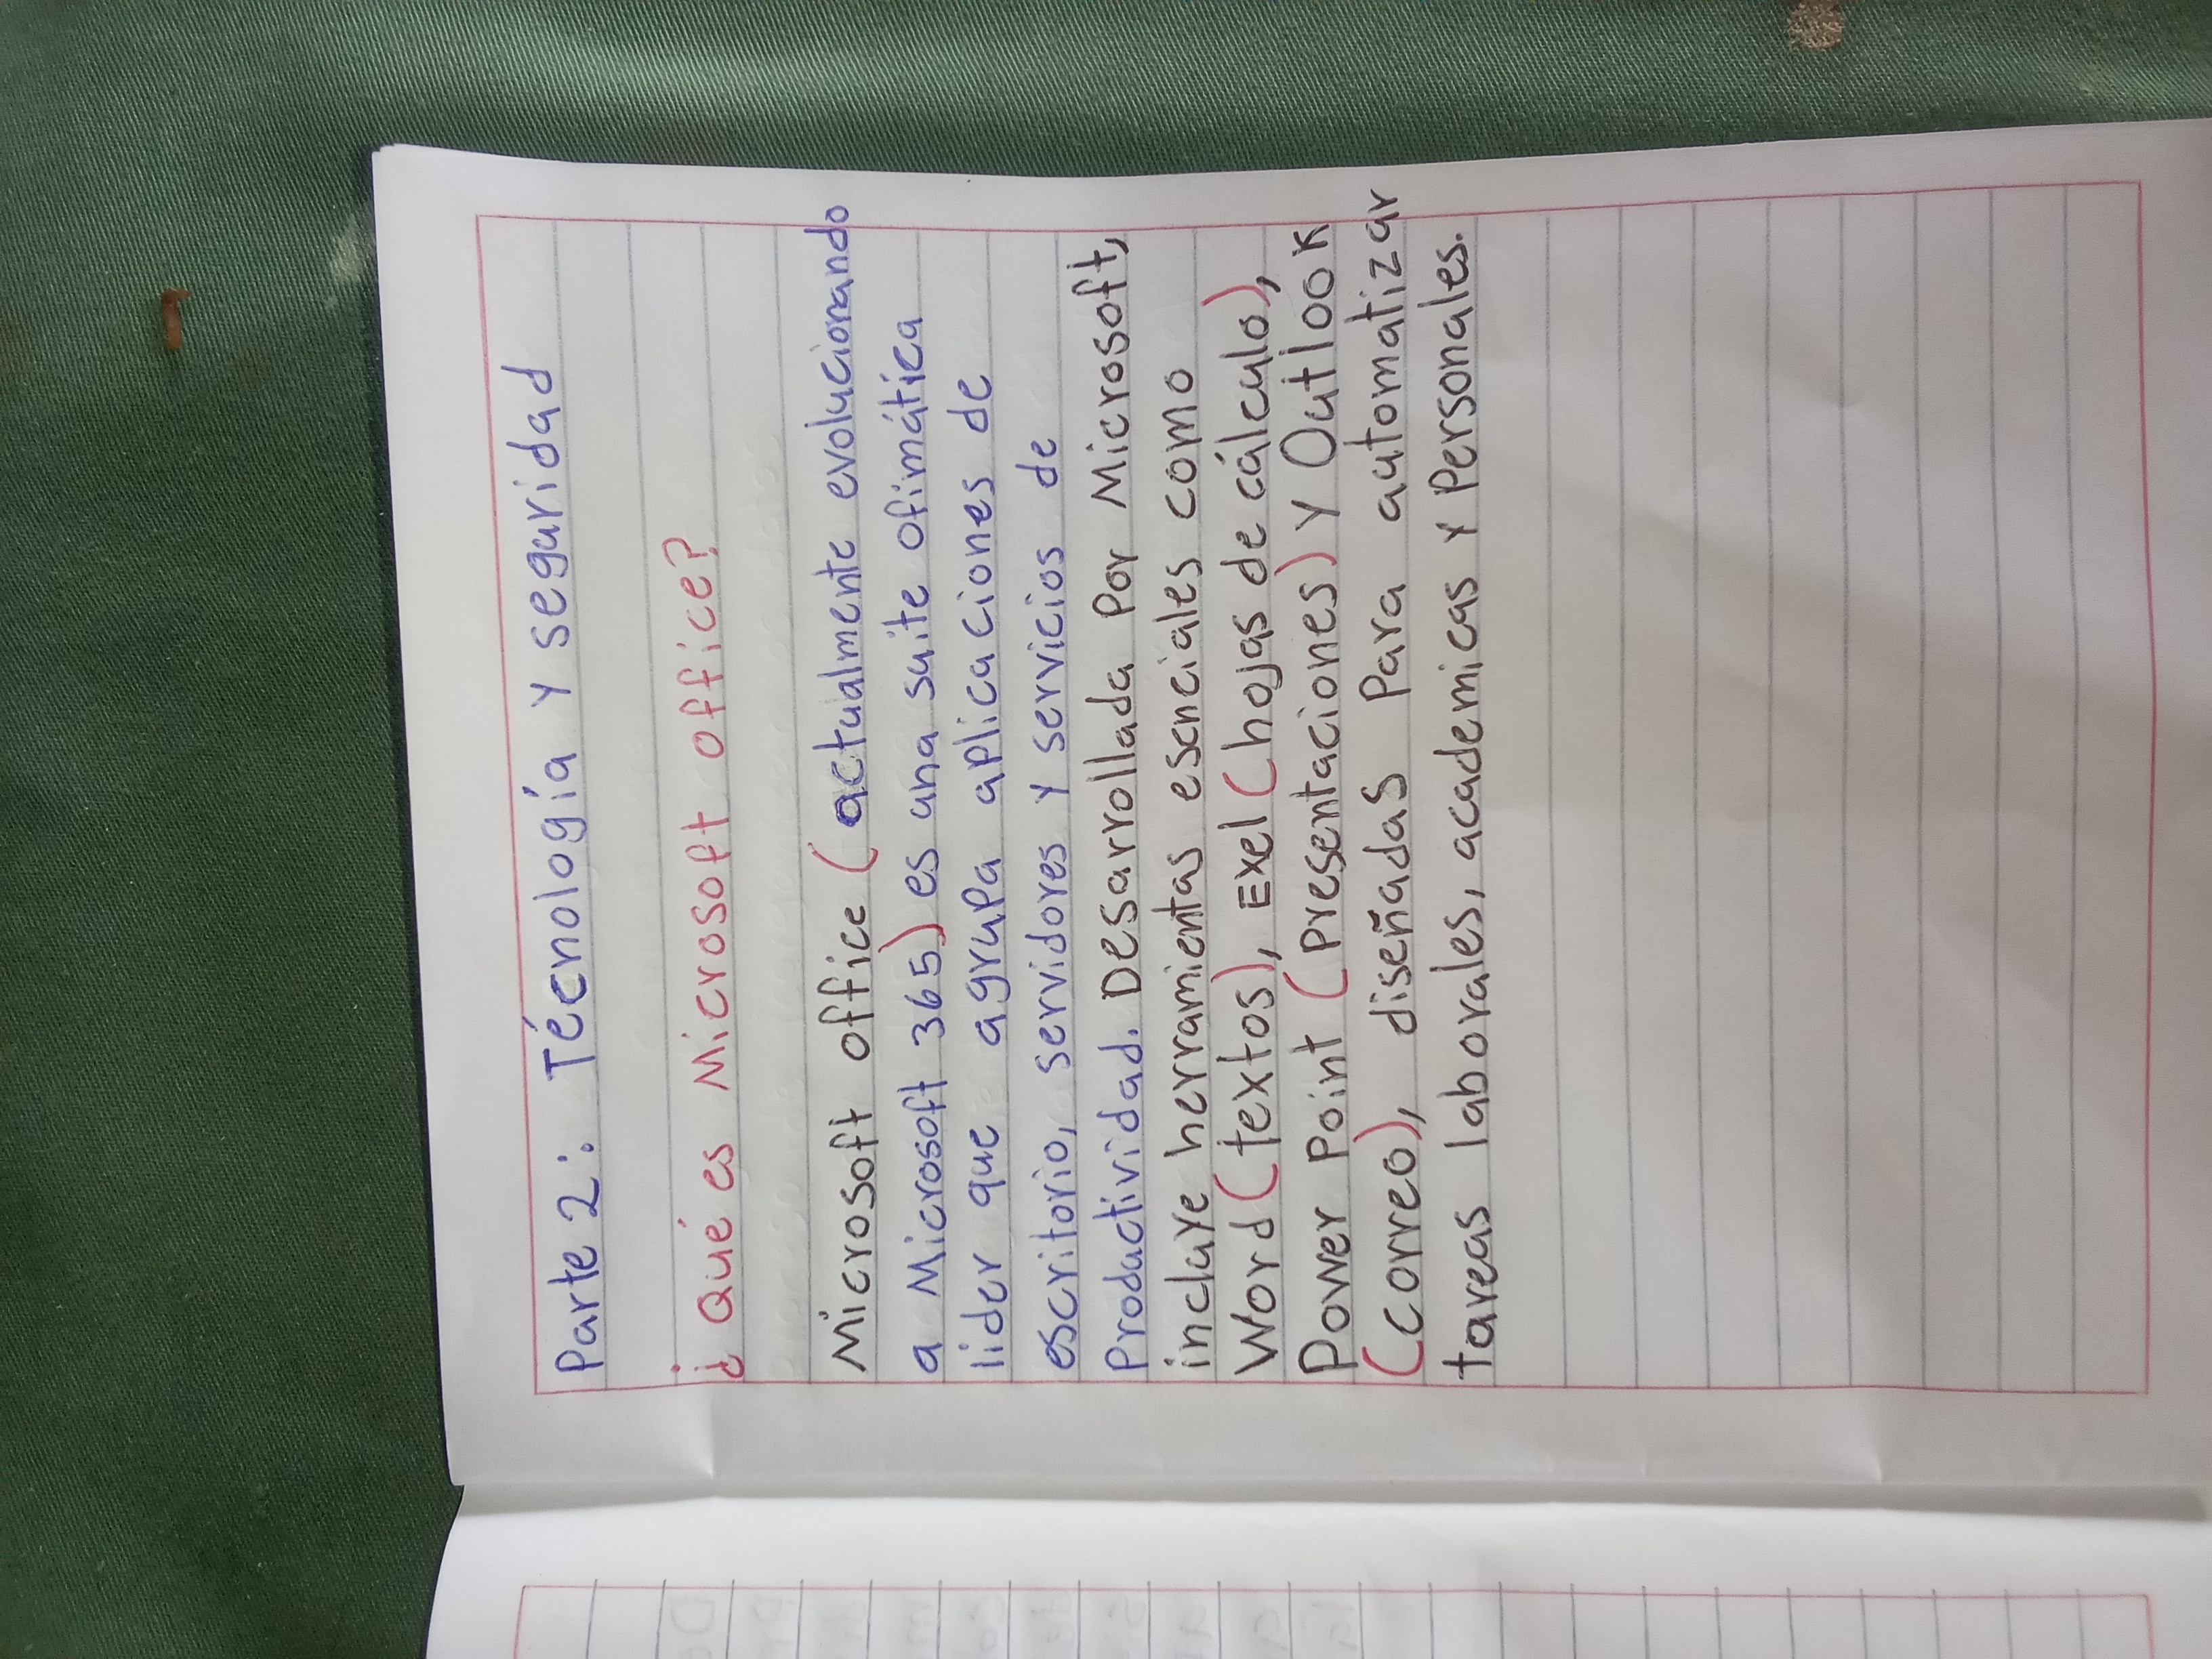 Parte 2: Técnología y seguridad
¿Qué es Microsoft office?
Microsoft office (actualmente evolucionando
a Microsoft 365) es una suite ofimática
lider que agrupa aplicaciones de
escritorio, servidores y servicios de
Productividad. Desarrollada Por Microsoft,
incluye herramientas esenciales como
Word (textos), Exel (hojas de cálculo),
Power Point (Presentaciones) y Outlook
(correo), diseñadas Para automatizar
tareas laborales, academicas y Personales.